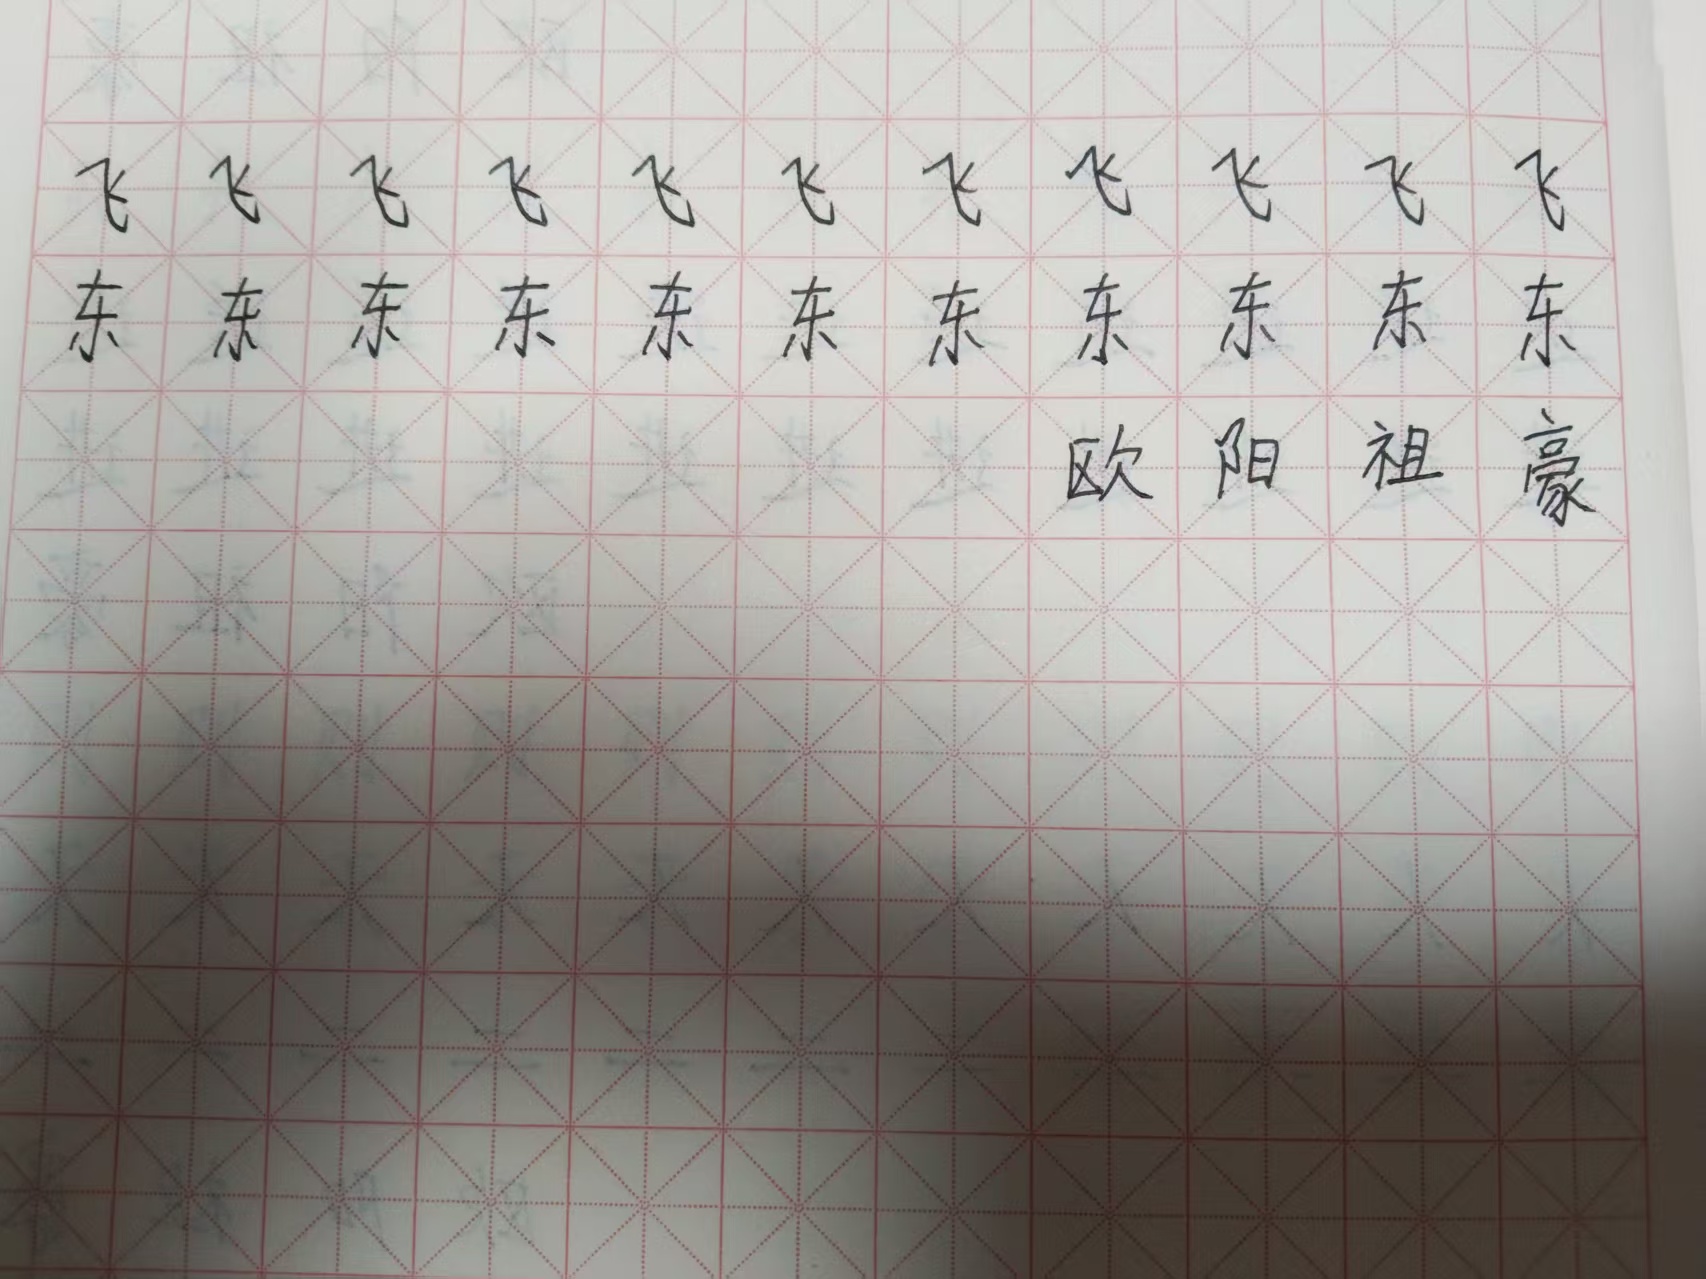 飞飞飞飞飞飞飞飞飞飞飞
东东东东东东东东东东东
欧阳祖豪